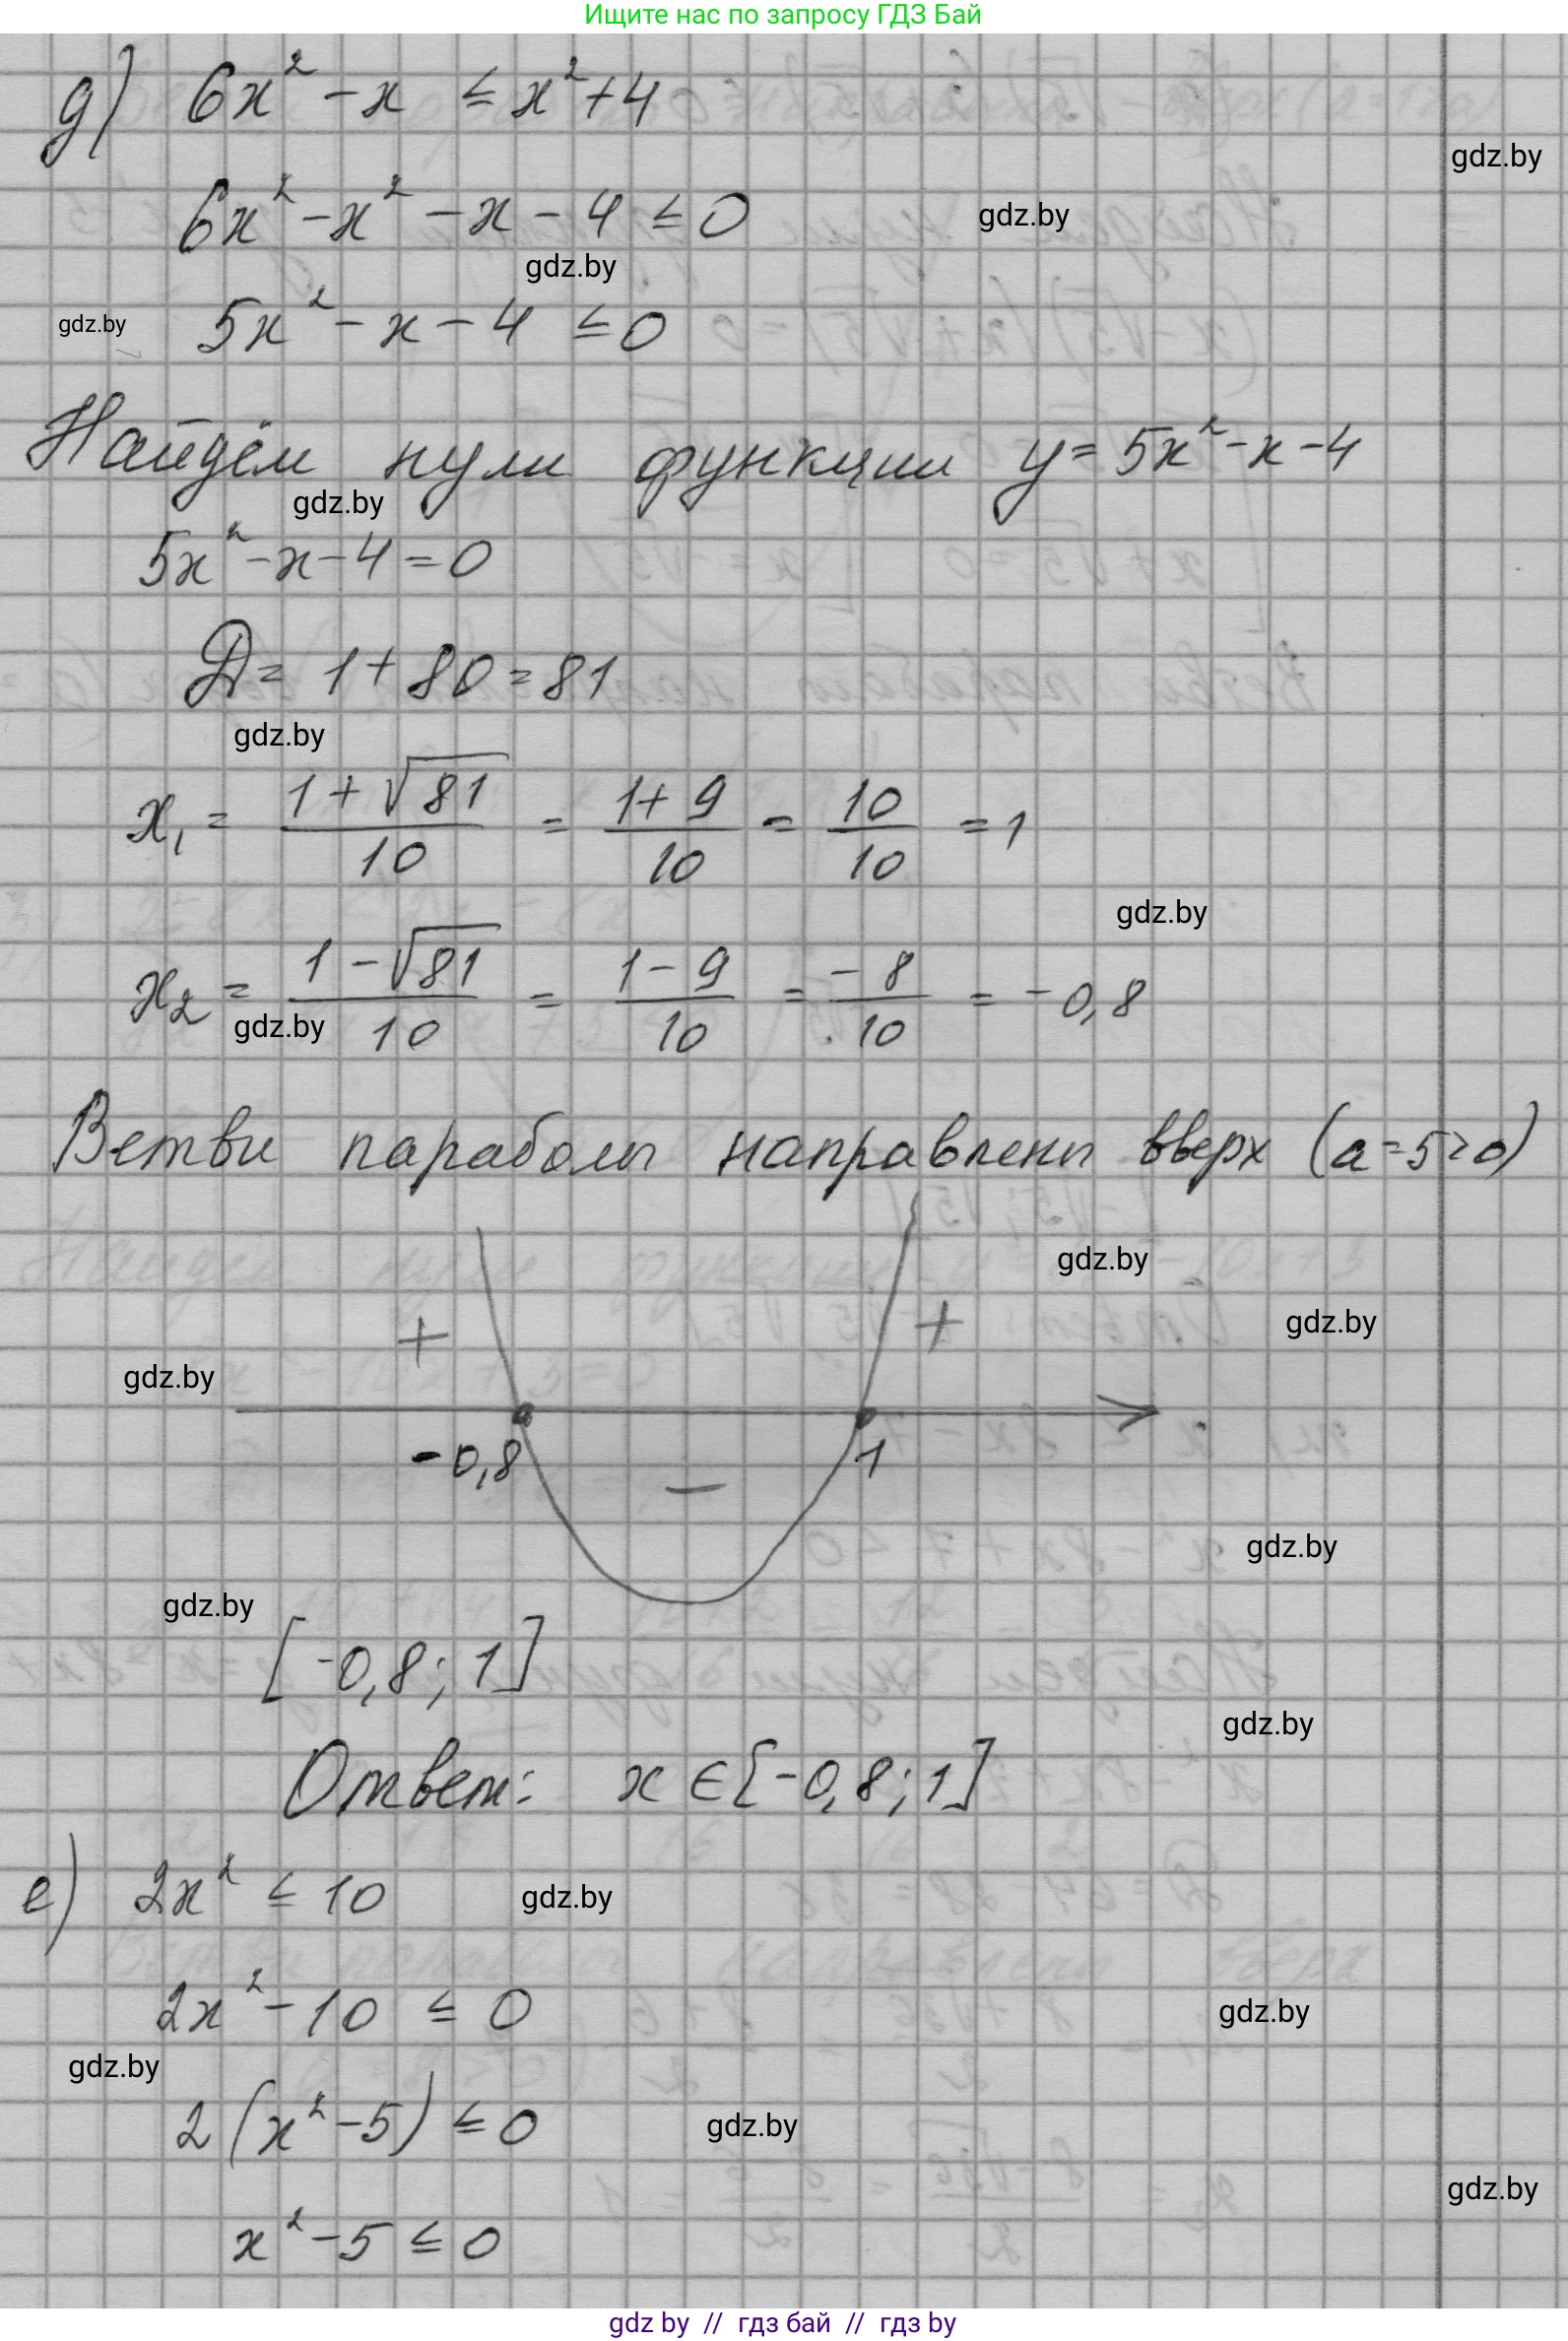 Ищите нас по запросу ГДЗ Бай
д) 6x² - x ≤ x² + 4
gdz.by
6x² - x² - x - 4 ≤ 0
gdz.by
gdz.by
gdz.by
5x² - x - 4 ≤ 0
Найдём нули функции y = 5x² - x - 4
gdz.by
5x² - x - 4 = 0
D = 1 + 80 = 81
gdz.by
x₁ = (1 + √81)/10 = (1 + 9)/10 = 10/10 = 1
gdz.by
x₂ = (1 - √81)/10 = (1 - 9)/10 = -8/10 = -0,8
gdz.by
Ветви параболы направлены вверх (a = 5 > 0)
gdz.by
gdz.by
+ +
gdz.by
-0,8 - 1
gdz.by
gdz.by
[-0,8; 1]
gdz.by
Ответ: x ∈ [-0,8; 1]
е) 2x² ≤ 10
gdz.by
2x² - 10 ≤ 0
gdz.by
gdz.by
2(x² - 5) ≤ 0
gdz.by
gdz.by
x² - 5 ≤ 0
gdz by // гдз бай // гдз by